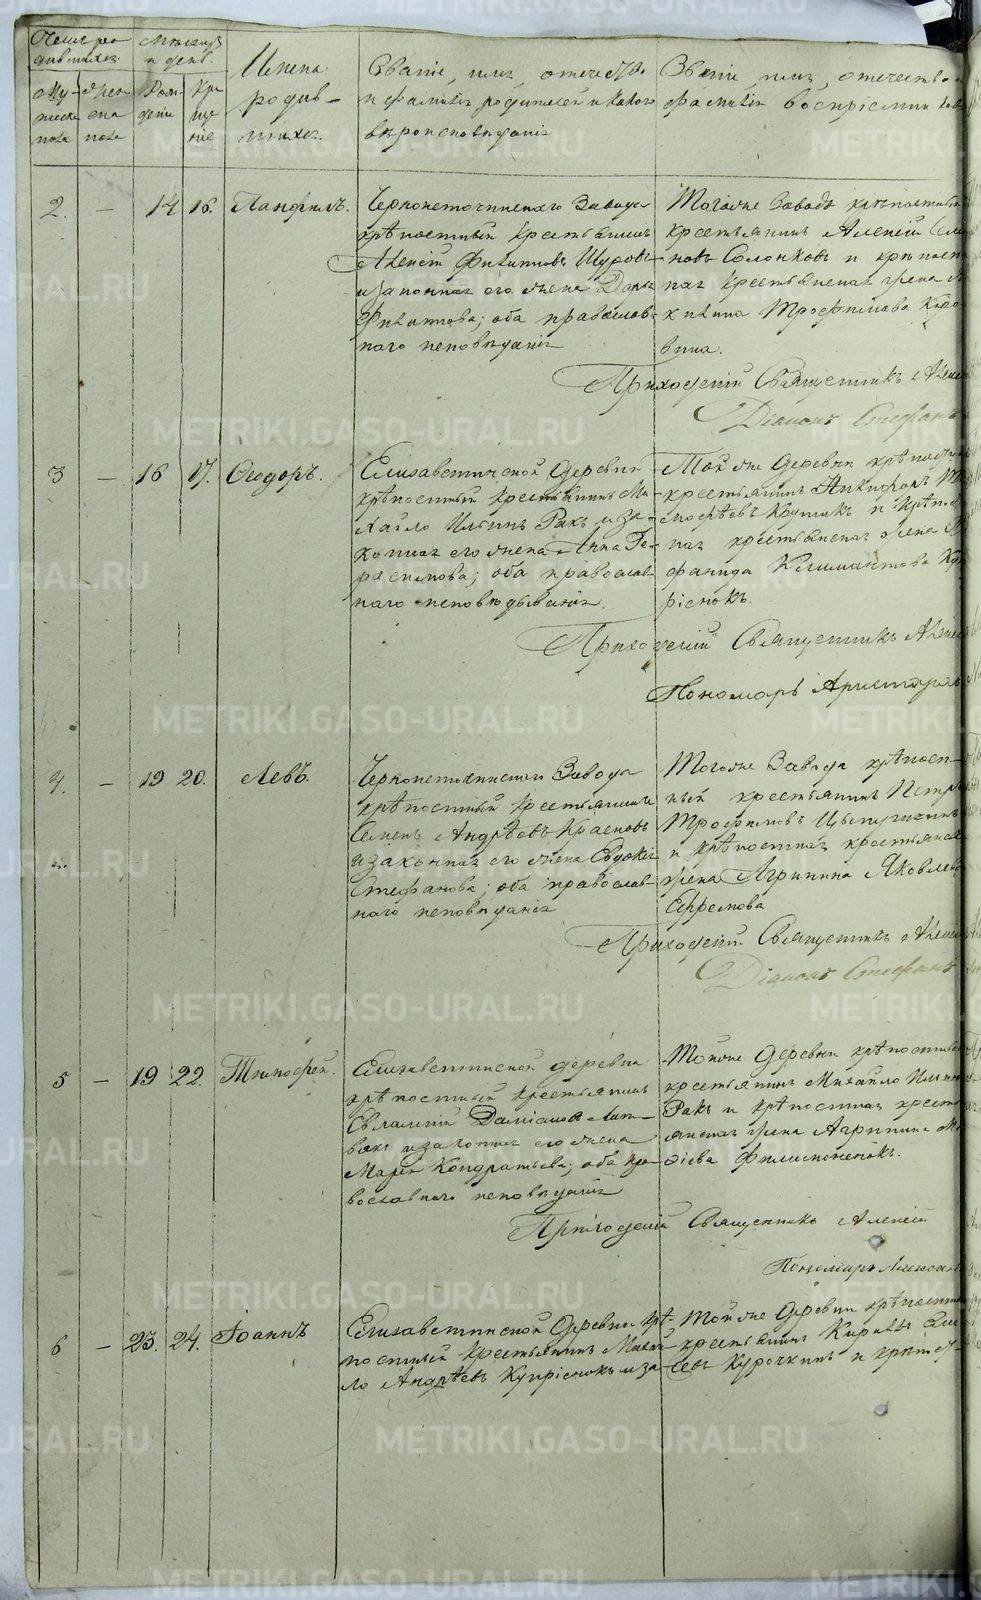 Число ро-
дившихся.
Мѣсяцъ
и день.
Му-
жеска
пола
Жен-
ска
пола
Рож-
денія
Кре-
ще-
ніе
Имена
родив-
шихся.
Званіе, имя, отечество
и фамилія родителей и какого
вѣроисповѣданія
Званіе, имя, отечество и
фамилія воспріемниковъ
2. — 14 16. Панфилъ.
Черноисточинскаго Завода
крѣпостный крестьянинъ
Алексѣй Филипповъ Щуровъ
и законная его жена Дарья
Филиппова; оба православ-
наго исповѣданія
Тогоже Завода крѣпостный
крестьянинъ Алексѣй
новъ Солонковъ и крѣпост-
ная крестьянская жена
Трофимова
вина.
Приходскій Священникъ Алексѣй
Діаконъ Стефанъ
3 — 16 17. Ѳеодоръ.
Елизаветинской Деревни
крѣпостный крестьянинъ Ми-
хайло Ильинъ Ракъ и за-
конная его жена Анна Ге-
расимова; оба православ-
наго исповѣдыванія.
Той же Деревни крѣпостный
крестьянинъ Никифоръ
моѳѣевъ Крутикъ и крѣпост-
ная крестьянская жена
фанида Климантова
ріенокъ.
Приходскій Священникъ Алексѣй
Пономарь Аристархъ
4. — 19 20. Левъ.
Черноисточинскаго Завода
крѣпостный крестьянинъ
Семенъ Андрѣевъ Красновъ
и законная его жена Евдокія
Стефанова; оба православ-
наго исповѣданія
Тогоже Завода крѣпост-
ный крестьянинъ Петръ
Трофимовъ
и крѣпостная крестьянская
жена Агрипина Яковлева
Ефремова
Приходскій Священникъ Алексѣй
Діаконъ Стефанъ
5 — 19 22. Тимофей.
Елизаветинской деревни
крѣпостный крестьянинъ
Евлампій Даміановъ Лит-
вакъ и законная его жена
Марія Кондратьева; оба пра-
вославнаго исповѣданія
Тойже Деревни крѣпостный
крестьянинъ Михайло Ильинъ
Ракъ и крѣпостная кресть-
янская жена Агрипина Мо-
сіева Филипоненокъ.
Приходскій Священникъ Алексѣй
Пономарь Александръ
6 — 23. 24. Іоаннъ
Елизаветинской Деревни крѣ-
постный крестьянинъ Михай-
ло Андрѣевъ Купріенокъ и за-
Той же Деревни крѣпостный
крестьянинъ Кирилъ
севъ Курочкинъ и крѣпост-
METRIKI.GASO-URAL.RU